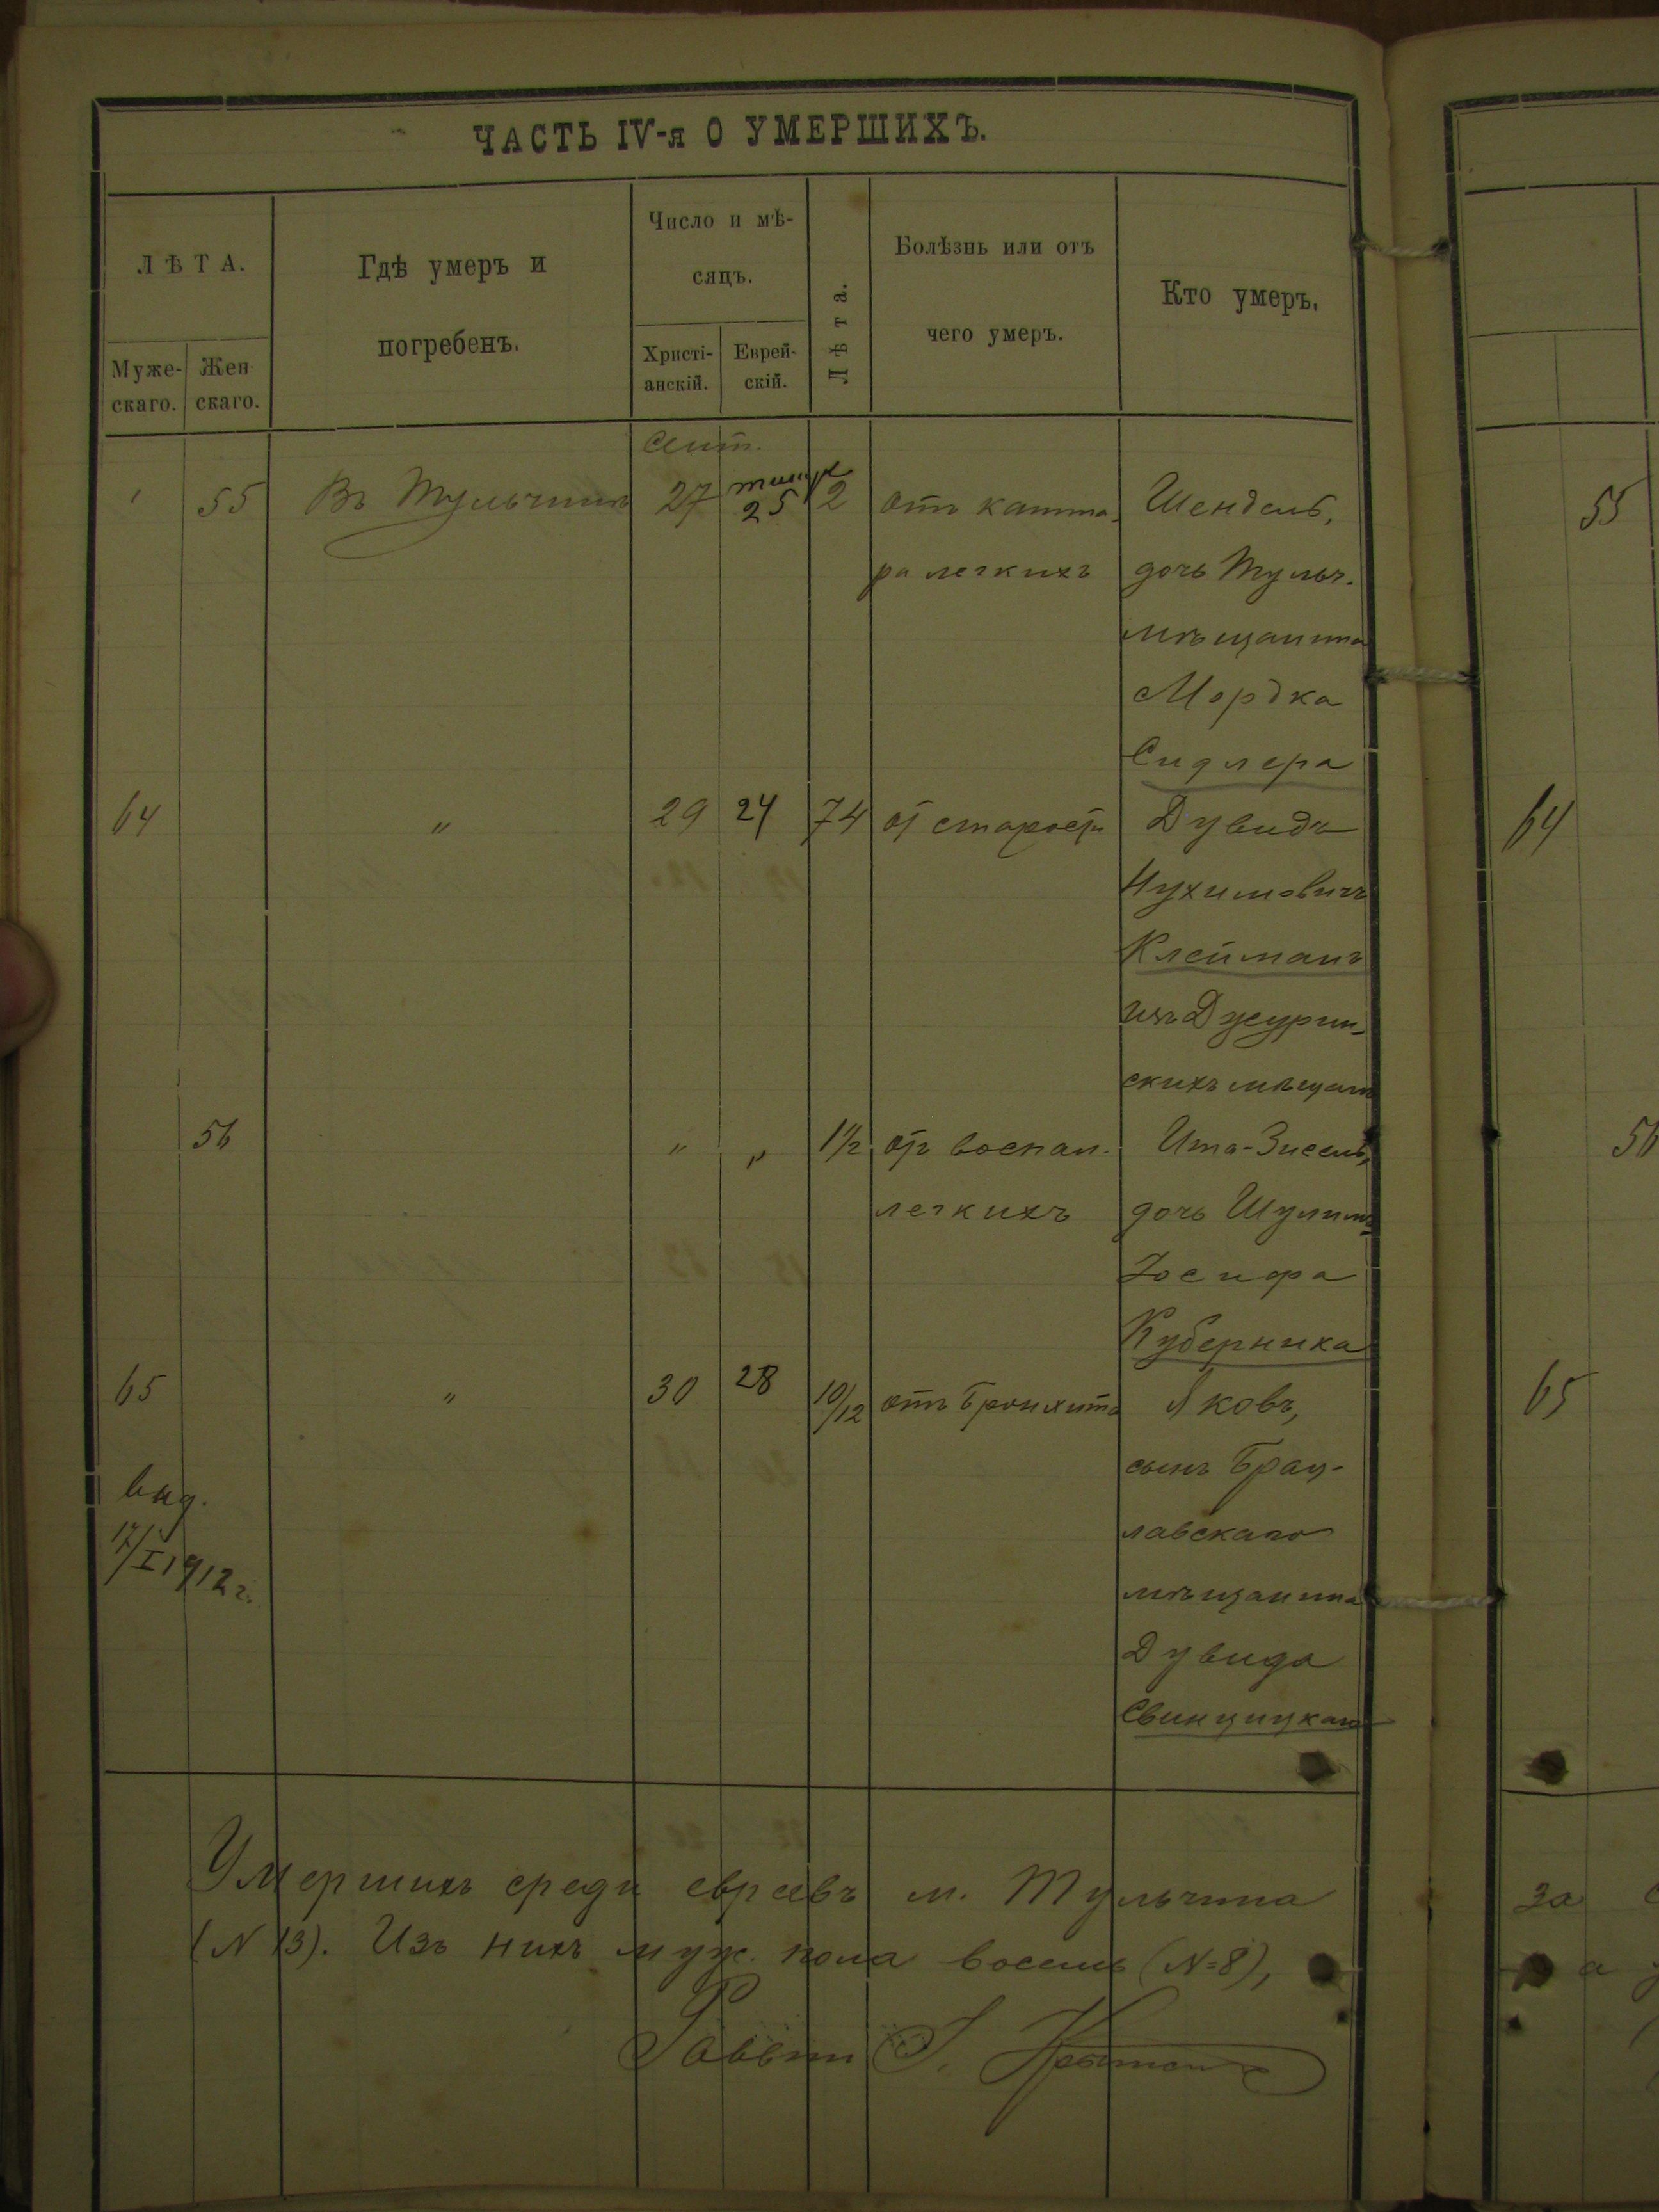 ЧАСТЬ IV-я О УМЕРШИХЪ.
ЛѢТА.
Муже-
скаго.
Жен
скаго.
Гдѣ умеръ и
погребенъ.
Число и мѣ-
сяцъ.
Христі-
анскій.
Еврей-
скій.
Лѣта.
Болѣзнь или отъ
чего умеръ.
Кто умеръ.
Сент.
55 Въ Тульчинѣ 27 25 2 отъ катта- Шендель,
ра легкихъ дочь Тульч.
мѣщанина
Мордка
Сидлера
64 " 29 24 74 от старост Дувидъ
Нухимовичъ
Клейманъ
изъ Джурин-
скихъ мѣщанъ
56 " " 1½ от воспал. Ита-Зисель,
легкихъ дочь Шулим-
Іосифа
Куберника
65 " 30 28 10/12 отъ бронхита Яковъ,
сынъ Брац-
лавскаго
мѣщанина
Дувида
Свинцицкаго
выд.
17/I 1912 г.
Умершихъ среди евреевъ м. Тульчина
(N 13). Изъ нихъ муж. пола восемь (N=8),
Раввинъ
55
64
56
65
за
а